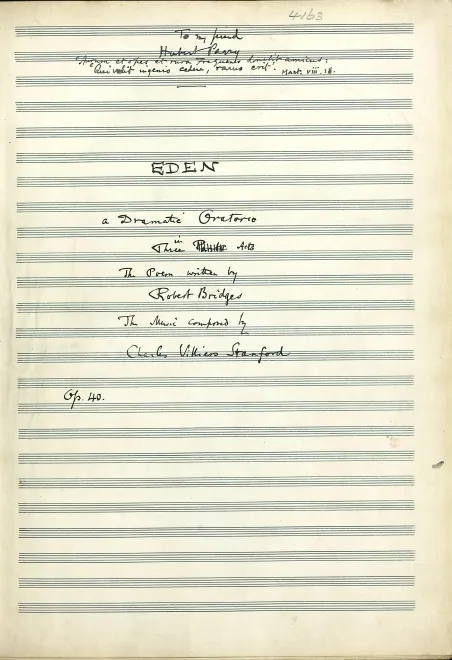 4163
To my friend
Hubert Parry
Aurum et opes et rura frequens donabit amicus:
Qui velit ingenio cedere, rarus erit. Mart. viii. 18.
EDEN
a Dramatic Oratorio
in
Three Acts
The Poem written by
Robert Bridges
The Music composed by
Charles Villiers Stanford
Op. 40.